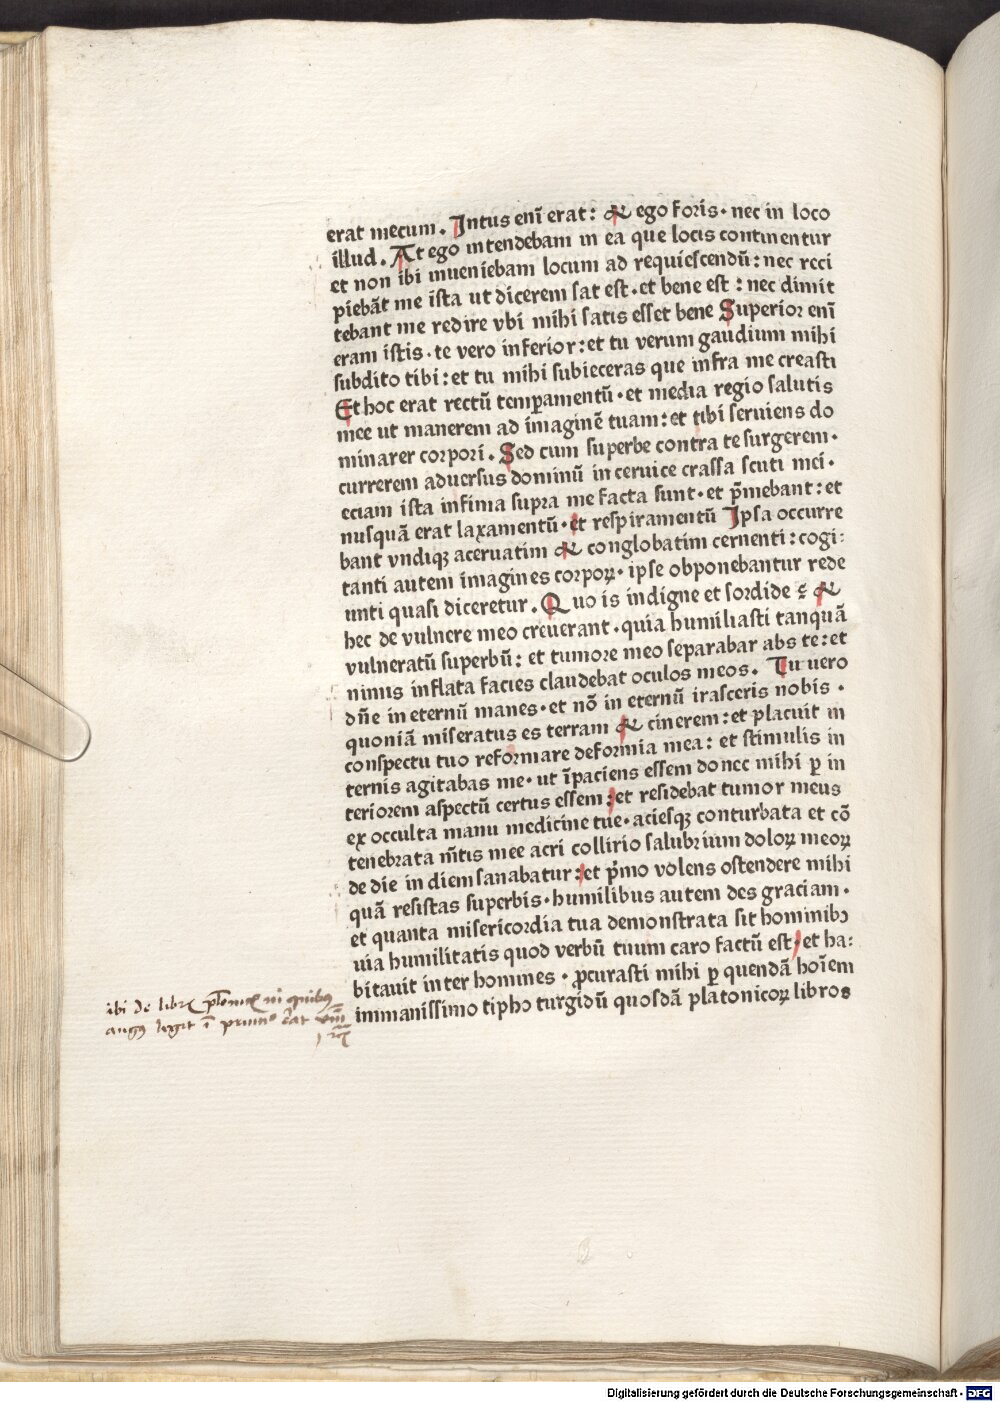 erat mecum. Intus enī erat: & ego foris· nec in loco
illud. At ego intendebam in ea que locis continentur
et non ibi inueniebam locum ad requiescendū: nec reci
piebāt me ista ut dicerem sat est·et bene est: nec dimit
tebant me redire vbi mihi satis esset bene Superior enī
eram istis·te vero inferior:et tu verum gaudium mihi
subdito tibi:et tu mihi subieceras que infra me creasti
Et hoc erat rectū temꝑamentū·et media regio salutis
mee ut manerem ad imaginē tuam:et tibi seruiens do
minarer corpori. Sed cum superbe contra te surgerem·
currerem aduersus dominū in ceruice crassa scuti mei·
eciam ista infima supra me facta sunt·et p̄mebant:et
nusquā erat laxamentū·et respiramentū Ipsa occurre
bant vndiqꝫ aceruatim & conglobatim cernenti:cogi:
tanti autem imagines corpoꝝ·ipse obponebantur rede
unti quasi diceretur. Quo is indigne et sordide ⁊ &
hec de vulnere meo creuerant·quia humiliasti tanquā
vulneratū superbū: et tumore meo separabar abs te:et
nimis inflata facies claudebat oculos meos. Tu uero
dn̄e in eternū manes·et nō in eternū irasceris nobis·
quoniā miseratus es terram & cinerem:et placuit in
conspectu tuo reformare deformia mea: et stimulis in
ternis agitabas me·ut īpaciens essem donec mihi ꝑ in
teriorem aspectū certus essem:et residebat tumor meus
ex occulta manu medicine tue·aciesqꝫ conturbata et cō
tenebrata m̄tis mee acri collirio salubrium doloꝝ meoꝝ
de die in diem sanabatur:et p̄mo volens ostendere mihi
quā resistas superbis·humilibus autem des graciam·
et quanta misericordia tua demonstrata sit hominibꝯ
uia humilitatis quod verbū tuum caro factū est·et ha:
bitauit inter homines·ꝓcurasti mihi ꝑ quendā hoīem
immanissimo tiphꝯ turgidū quosdā platonicoꝝ libros
ibi de libr̄ platonic̄ in quibus
augꝯ legit ī principio erat verbū